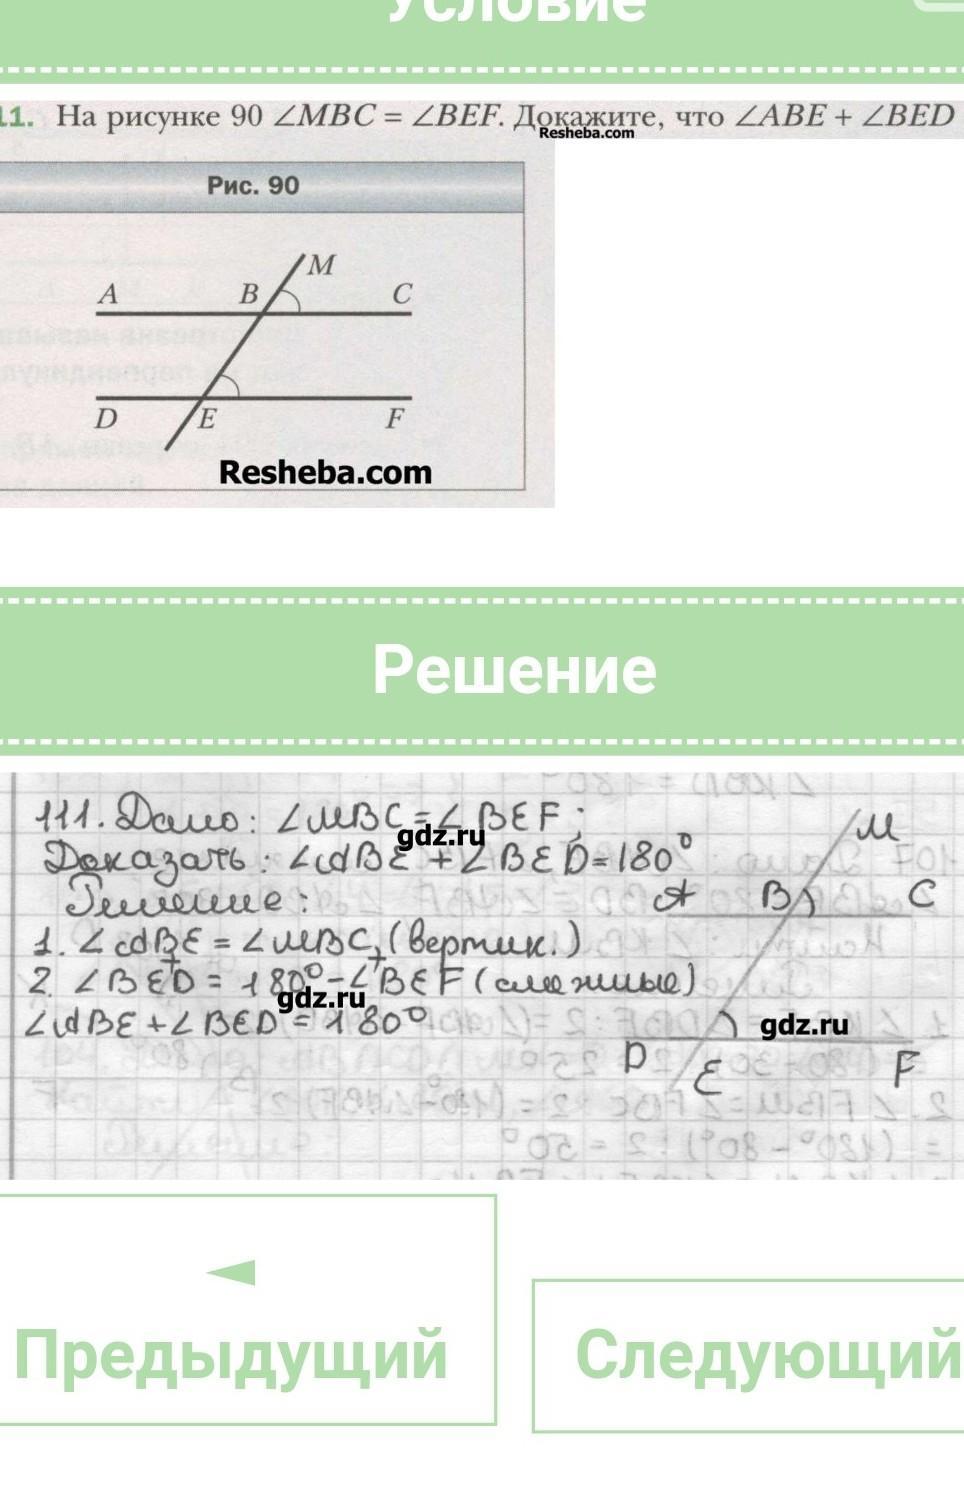 Условие
11. На рисунке 90 ∠MBC = ∠BEF. Докажите, что ∠ABE + ∠BED
Resheba.com
Рис. 90
M
A B C
D E F
Resheba.com
Решение
111. Дано: ∠MBC = ∠BEF;
gdz.ru
Доказать: ∠ABE + ∠BED = 180°
Решение:
1. ∠ABE = ∠MBC, (вертик.)
+ +
2. ∠BED = 180° - ∠BEF (смежные)
gdz.ru
∠ABE + ∠BED = 180°
M
A B C
gdz.ru
D E F
Предыдущий
Следующий